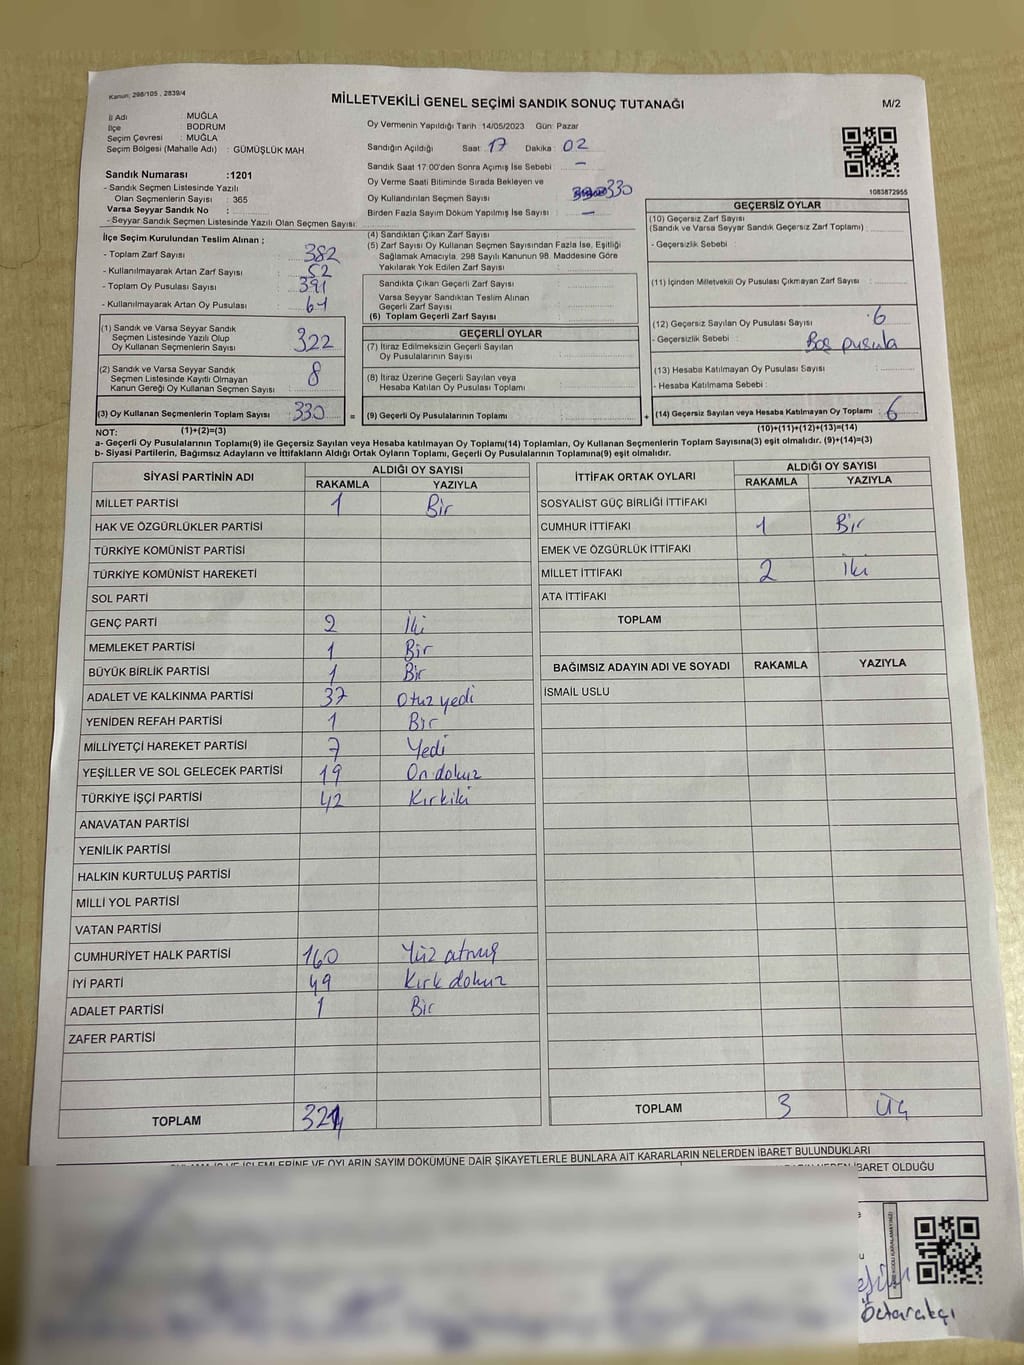 Kanun: 298/105 , 2839/4
MİLLETVEKİLİ GENEL SEÇİMİ SANDIK SONUÇ TUTANAĞI
M/2
İl Adı : MUĞLA
İlçe : BODRUM
Seçim Çevresi : MUĞLA
Seçim Bölgesi (Mahalle Adı) : GÜMÜŞLÜK MAH.
Sandık Numarası :1201
- Sandık Seçmen Listesinde Yazılı
Olan Seçmenlerin Sayısı : 365
Varsa Seyyar Sandık No :
- Seyyar Sandık Seçmen Listesinde Yazılı Olan Seçmen Sayısı:
Oy Vermenin Yapıldığı Tarih 14/05/2023 Gün: Pazar
Sandığın Açıldığı Saat 17 Dakika 02
Sandık Saat 17:00'den Sonra Açımış İse Sebebi –
Oy Verme Saati Bitiminde Sırada Bekleyen ve
Oy Kullandırılan Seçmen Sayısı 330
Birden Fazla Sayım Döküm Yapılmış İse Sayısı –
1083872955
İlçe Seçim Kurulundan Teslim Alınan ;
- Toplam Zarf Sayısı 382
- Kullanılmayarak Artan Zarf Sayısı 52
- Toplam Oy Pusulası Sayısı 391
- Kullanılmayarak Artan Oy Pusulası 61
(1) Sandık ve Varsa Seyyar Sandık
Seçmen Listesinde Yazılı Olup
Oy Kullanan Seçmenlerin Sayısı 322
(2) Sandık ve Varsa Seyyar Sandık
Seçmen Listesinde Kayıtlı Olmayan
Kanun Gereği Oy Kullanan Seçmen Sayısı 8
(3) Oy Kullanan Seçmenlerin Toplam Sayısı 330 =
(4) Sandıktan Çıkan Zarf Sayısı
(5) Zarf Sayısı Oy Kullanan Seçmen Sayısından Fazla İse, Eşitliği
Sağlamak Amacıyla, 298 Sayılı Kanunun 98. Maddesine Göre
Yakılarak Yok Edilen Zarf Sayısı
Sandıkta Çıkan Geçerli Zarf Sayısı
Varsa Seyyar Sandıktan Teslim Alınan
Geçerli Zarf Sayısı
(6) Toplam Geçerli Zarf Sayısı
GEÇERLİ OYLAR
(7) İtiraz Edilmeksizin Geçerli Sayılan
Oy Pusulalarının Sayısı
(8) İtiraz Üzerine Geçerli Sayılan veya
Hesaba Katılan Oy Pusulası Toplamı
(9) Geçerli Oy Pusulalarının Toplamı +
GEÇERSİZ OYLAR
(10) Geçersiz Zarf Sayısı
(Sandık ve Varsa Seyyar Sandık Geçersiz Zarf Toplamı)
- Geçersizlik Sebebi :
(11) İçinden Milletvekili Oy Pusulası Çıkmayan Zarf Sayısı
(12) Geçersiz Sayılan Oy Pusulası Sayısı 6
- Geçersizlik Sebebi : Boş pusula
(13) Hesaba Katılmayan Oy Pusulası Sayısı
- Hesaba Katılmama Sebebi :
(14) Geçersiz Sayılan veya Hesaba Katılmayan Oy Toplamı : 6
NOT: (1)+(2)=(3)
(10)+(11)+(12)+(13)=(14)
a- Geçerli Oy Pusulalarının Toplamı(9) ile Geçersiz Sayılan veya Hesaba katılmayan Oy Toplamı(14) Toplamları, Oy Kullanan Seçmenlerin Toplam Sayısına(3) eşit olmalıdır. (9)+(14)=(3)
b- Siyasi Partilerin, Bağımsız Adayların ve İttifakların Aldığı Ortak Oyların Toplamı, Geçerli Oy Pusulalarının Toplamına(9) eşit olmalıdır.
SİYASİ PARTİNİN ADI ALDIĞI OY SAYISI
RAKAMLA YAZIYLA
MİLLET PARTİSİ 1 Bir
HAK VE ÖZGÜRLÜKLER PARTİSİ
TÜRKİYE KOMÜNİST PARTİSİ
TÜRKİYE KOMÜNİST HAREKETİ
SOL PARTİ
GENÇ PARTİ 2 İki
MEMLEKET PARTİSİ 1 Bir
BÜYÜK BİRLİK PARTİSİ 1 Bir
ADALET VE KALKINMA PARTİSİ 37 Otuz yedi
YENİDEN REFAH PARTİSİ 1 Bir
MİLLİYETÇİ HAREKET PARTİSİ 7 Yedi
YEŞİLLER VE SOL GELECEK PARTİSİ 19 On dokuz
TÜRKİYE İŞÇİ PARTİSİ 42 Kırkiki
ANAVATAN PARTİSİ
YENİLİK PARTİSİ
HALKIN KURTULUŞ PARTİSİ
MİLLİ YOL PARTİSİ
VATAN PARTİSİ
CUMHURİYET HALK PARTİSİ 160 Yüz atmış
İYİ PARTİ 49 Kırk dokuz
ADALET PARTİSİ 1 Bir
ZAFER PARTİSİ
TOPLAM 321
İTTİFAK ORTAK OYLARI ALDIĞI OY SAYISI
RAKAMLA YAZIYLA
SOSYALİST GÜÇ BİRLİĞİ İTTİFAKI
CUMHUR İTTİFAKI 1 Bir
EMEK VE ÖZGÜRLÜK İTTİFAKI
MİLLET İTTİFAKI 2 İki
ATA İTTİFAKI
TOPLAM
BAĞIMSIZ ADAYIN ADI VE SOYADI RAKAMLA YAZIYLA
İSMAİL USLU
TOPLAM 3 Üç
İŞLEMLERİNE VE OYLARIN SAYIM DÖKÜMÜNE DAİR ŞİKAYETLERLE BUNLARA AİT KARARLARIN NELERDEN İBARET BULUNDUKLARI
İBARET OLDUĞU